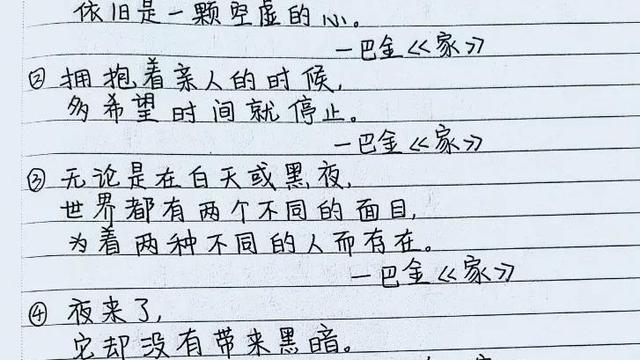 依旧是一颗空虚的心。
一巴金《家》
② 拥抱着亲人的时候,
多希望时间就停止。
一巴金《家》
③ 无论是在白天或黑夜,
世界都有两个不同的面目,
为着两种不同的人而存在。
一巴金《家》
④ 夜来了,
它却没有带来黑暗。